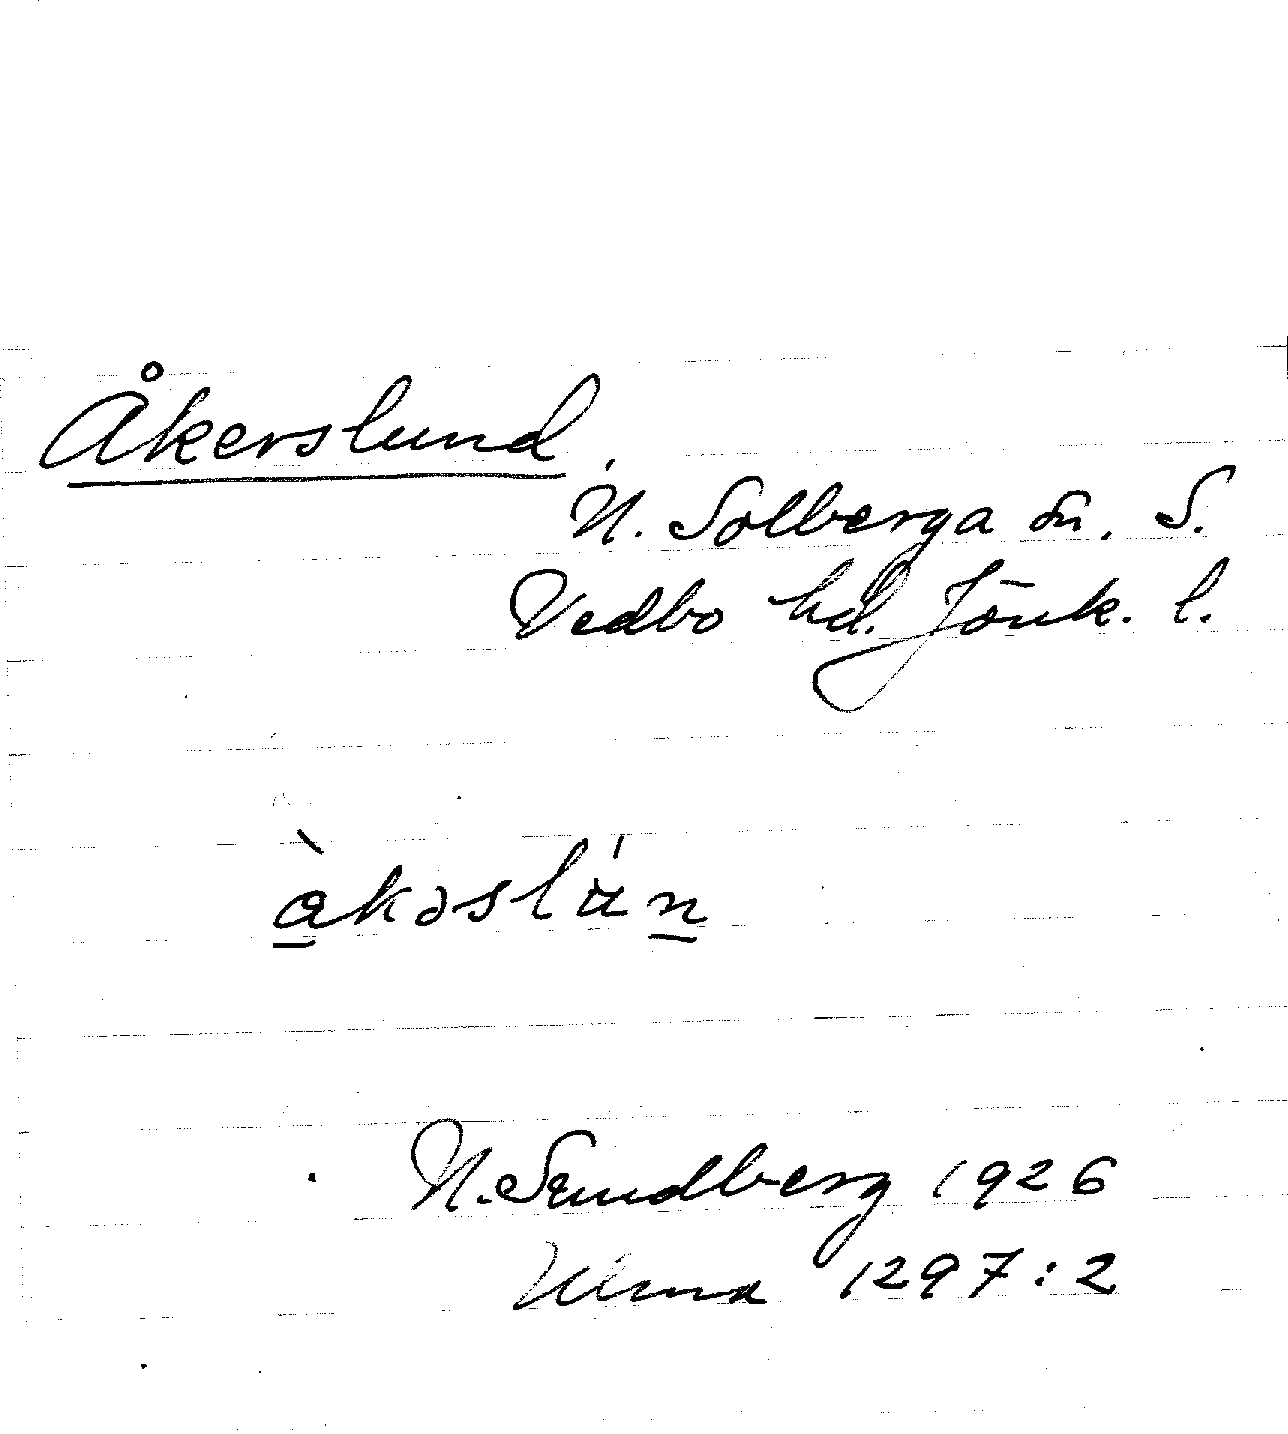 Åkerslund.
N. Solberga sn. S.
Vedbo hd. Jönk. l.
àkəslän
N. Sundberg 1926
Ulma 1297:2